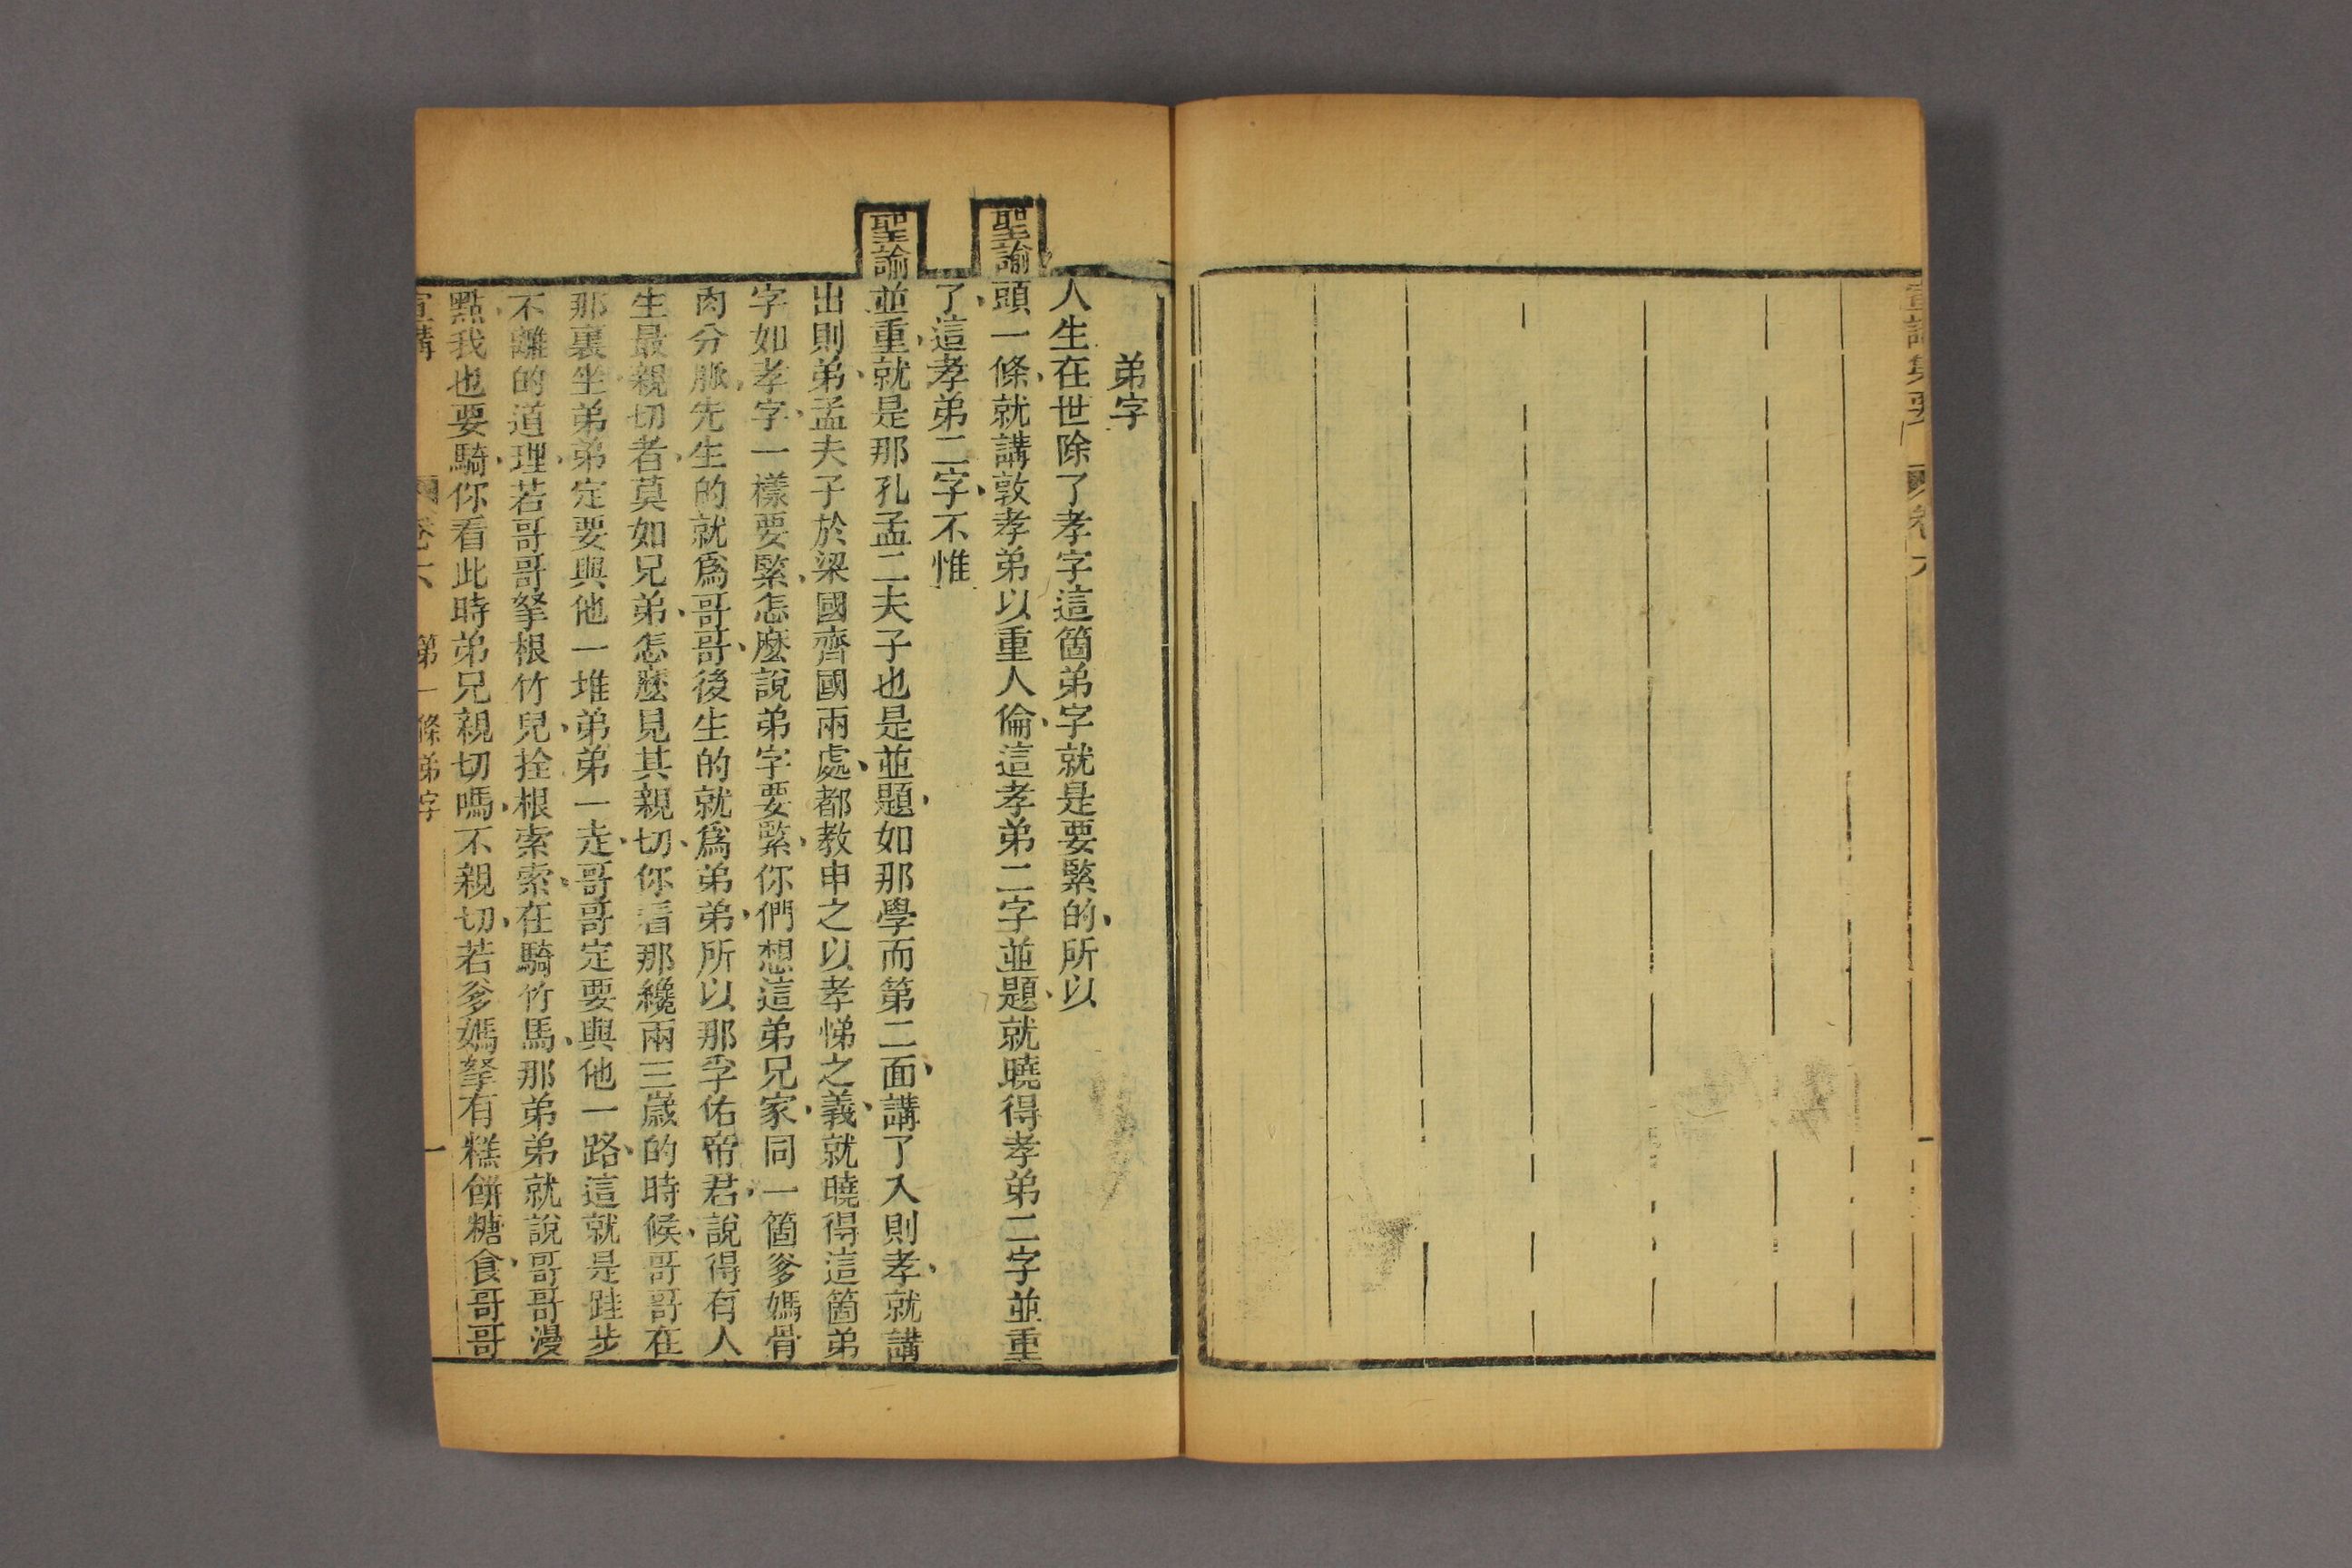 弟字
人生在世除了孝字這箇弟字就是要緊的、所以
聖諭頭一條、就講敦孝弟以重人倫、這孝弟二字並題、就曉得孝弟二字並重
了、這孝弟二字、不惟
聖諭並重、就是那孔孟二夫子也是並題、如那學而第二面、講了入則孝、就講
出則弟、孟夫子於梁國齊國兩處、都教申之以孝悌之義、就曉得這箇弟
字如孝字、一樣要緊、怎麼說弟字要緊、你們想這弟兄家、同一箇爹媽骨
肉分脈、先生的就爲哥哥、後生的就爲弟弟、所以那孚佑帝君、說得有人
生最親切者、莫如兄弟、怎麼見其親切、你看那纔兩三歲的時候、哥哥在
那裏坐、弟弟定要與他一堆、弟弟一走、哥哥定要與他一路、這就是跬步
不離的道理、若哥哥拏根竹兒、拴根索索、在騎竹馬、那弟弟就說哥哥漫
點、我也要騎、你看此時弟兄親切嗎、不親切、若爹媽拏有糕餅糖食、哥哥
宣講 卷六 第一條悌字 一
宣講集要 卷六